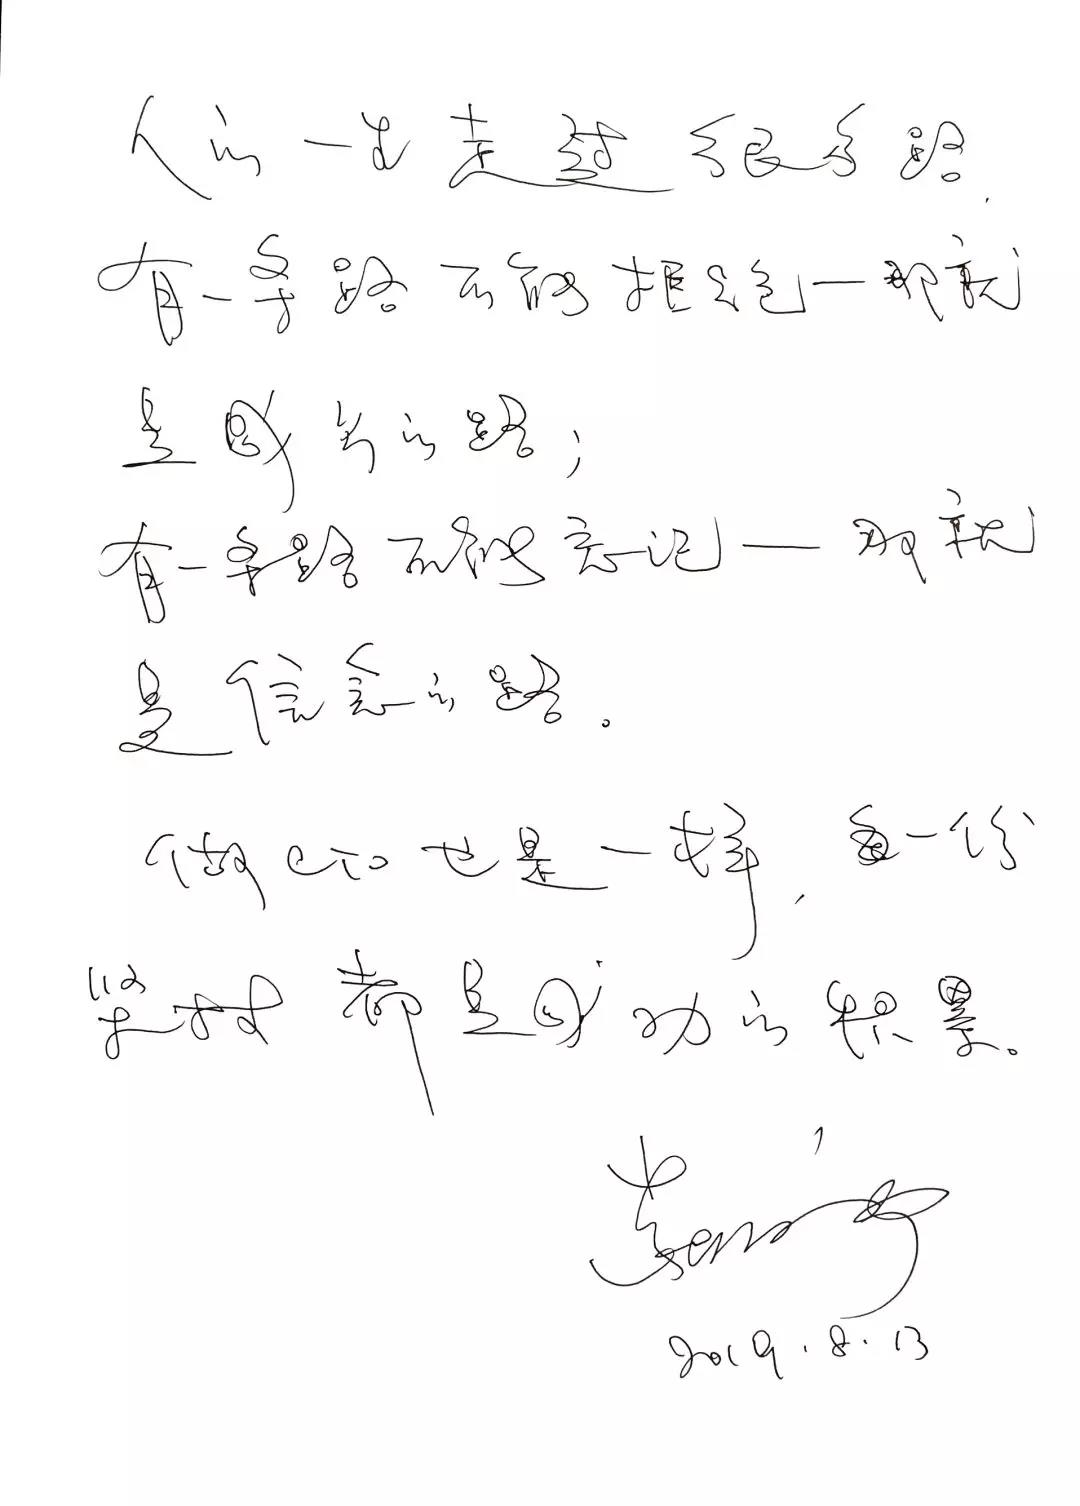 人的一生走过很多路，
有一条路不能拒绝—那就
是成长的路；
有一条路不能忘记—那就
是信念的路。
做CTO也是一样，每一份
坚持都是成功的积累。
2019.8.13